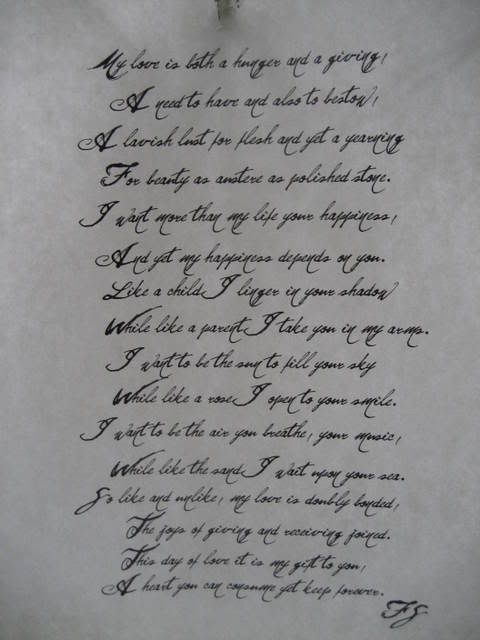 My love is both a hunger and a giving,
A need to have and also to bestow,
A lavish lust for flesh and yet a yearning
For beauty as austere as polished stone.
I want more than my life your happiness,
And yet my happiness depends on you.
Like a child I linger in your shadow
While like a parent I take you in my arms.
I want to be the sun to fill your sky
While like a rose I open to your smile.
I want to be the air you breathe, your music,
While like the sand I wait upon your sea.
So like and unlike, my love is doubly bonded,
The joys of giving and receiving joined.
This day of love it is my gift to you,
A heart you can consume yet keep forever.
FS